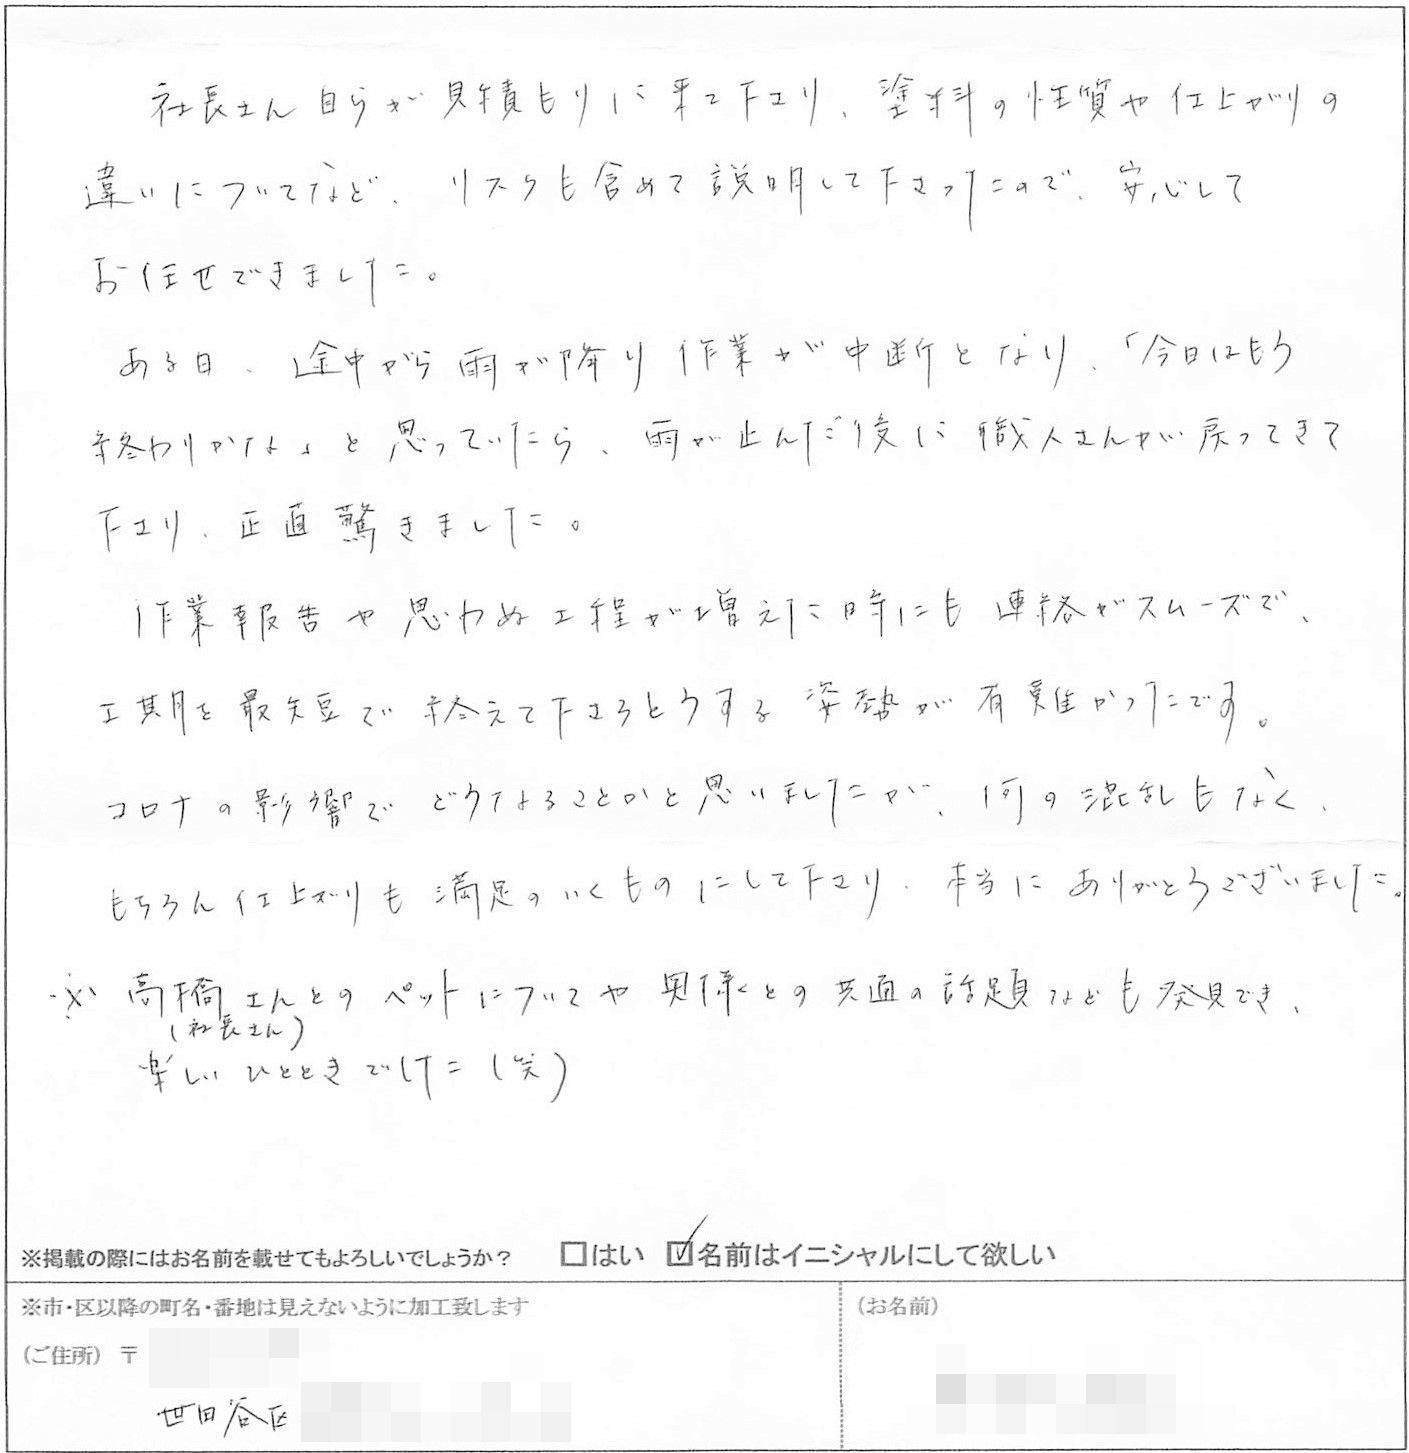 社長さん自らが見積もりに来て下さり、塗料の性質や仕上がりの
違いについてなど、リスクも含めて説明して下さったので、安心して
お任せできました。
ある日、途中から雨が降り作業が中断となり、「今日はもう
終わりかな」と思っていたら、雨が止んだ後に職人さんが戻ってきて
下さり、正直驚きました。
作業報告や思わぬ工程が増えた時にも連絡がスムーズで、
工期を最短で終えて下さろうとする姿勢が有難かったです。
コロナの影響でどうなることかと思いましたが、何の混乱もなく、
もちろん仕上がりも満足のいくものにして下さり、本当にありがとうございました。
※高橋さんとのペットについてや奥様との共通の話題なども発見でき、
(社長さん)
楽しいひとときでした(笑)
※掲載の際にはお名前を載せてもよろしいでしょうか? □はい ☑名前はイニシャルにして欲しい
※市・区以降の町名・番地は見えないように加工致します
(お名前)
(ご住所) 〒
世田谷区